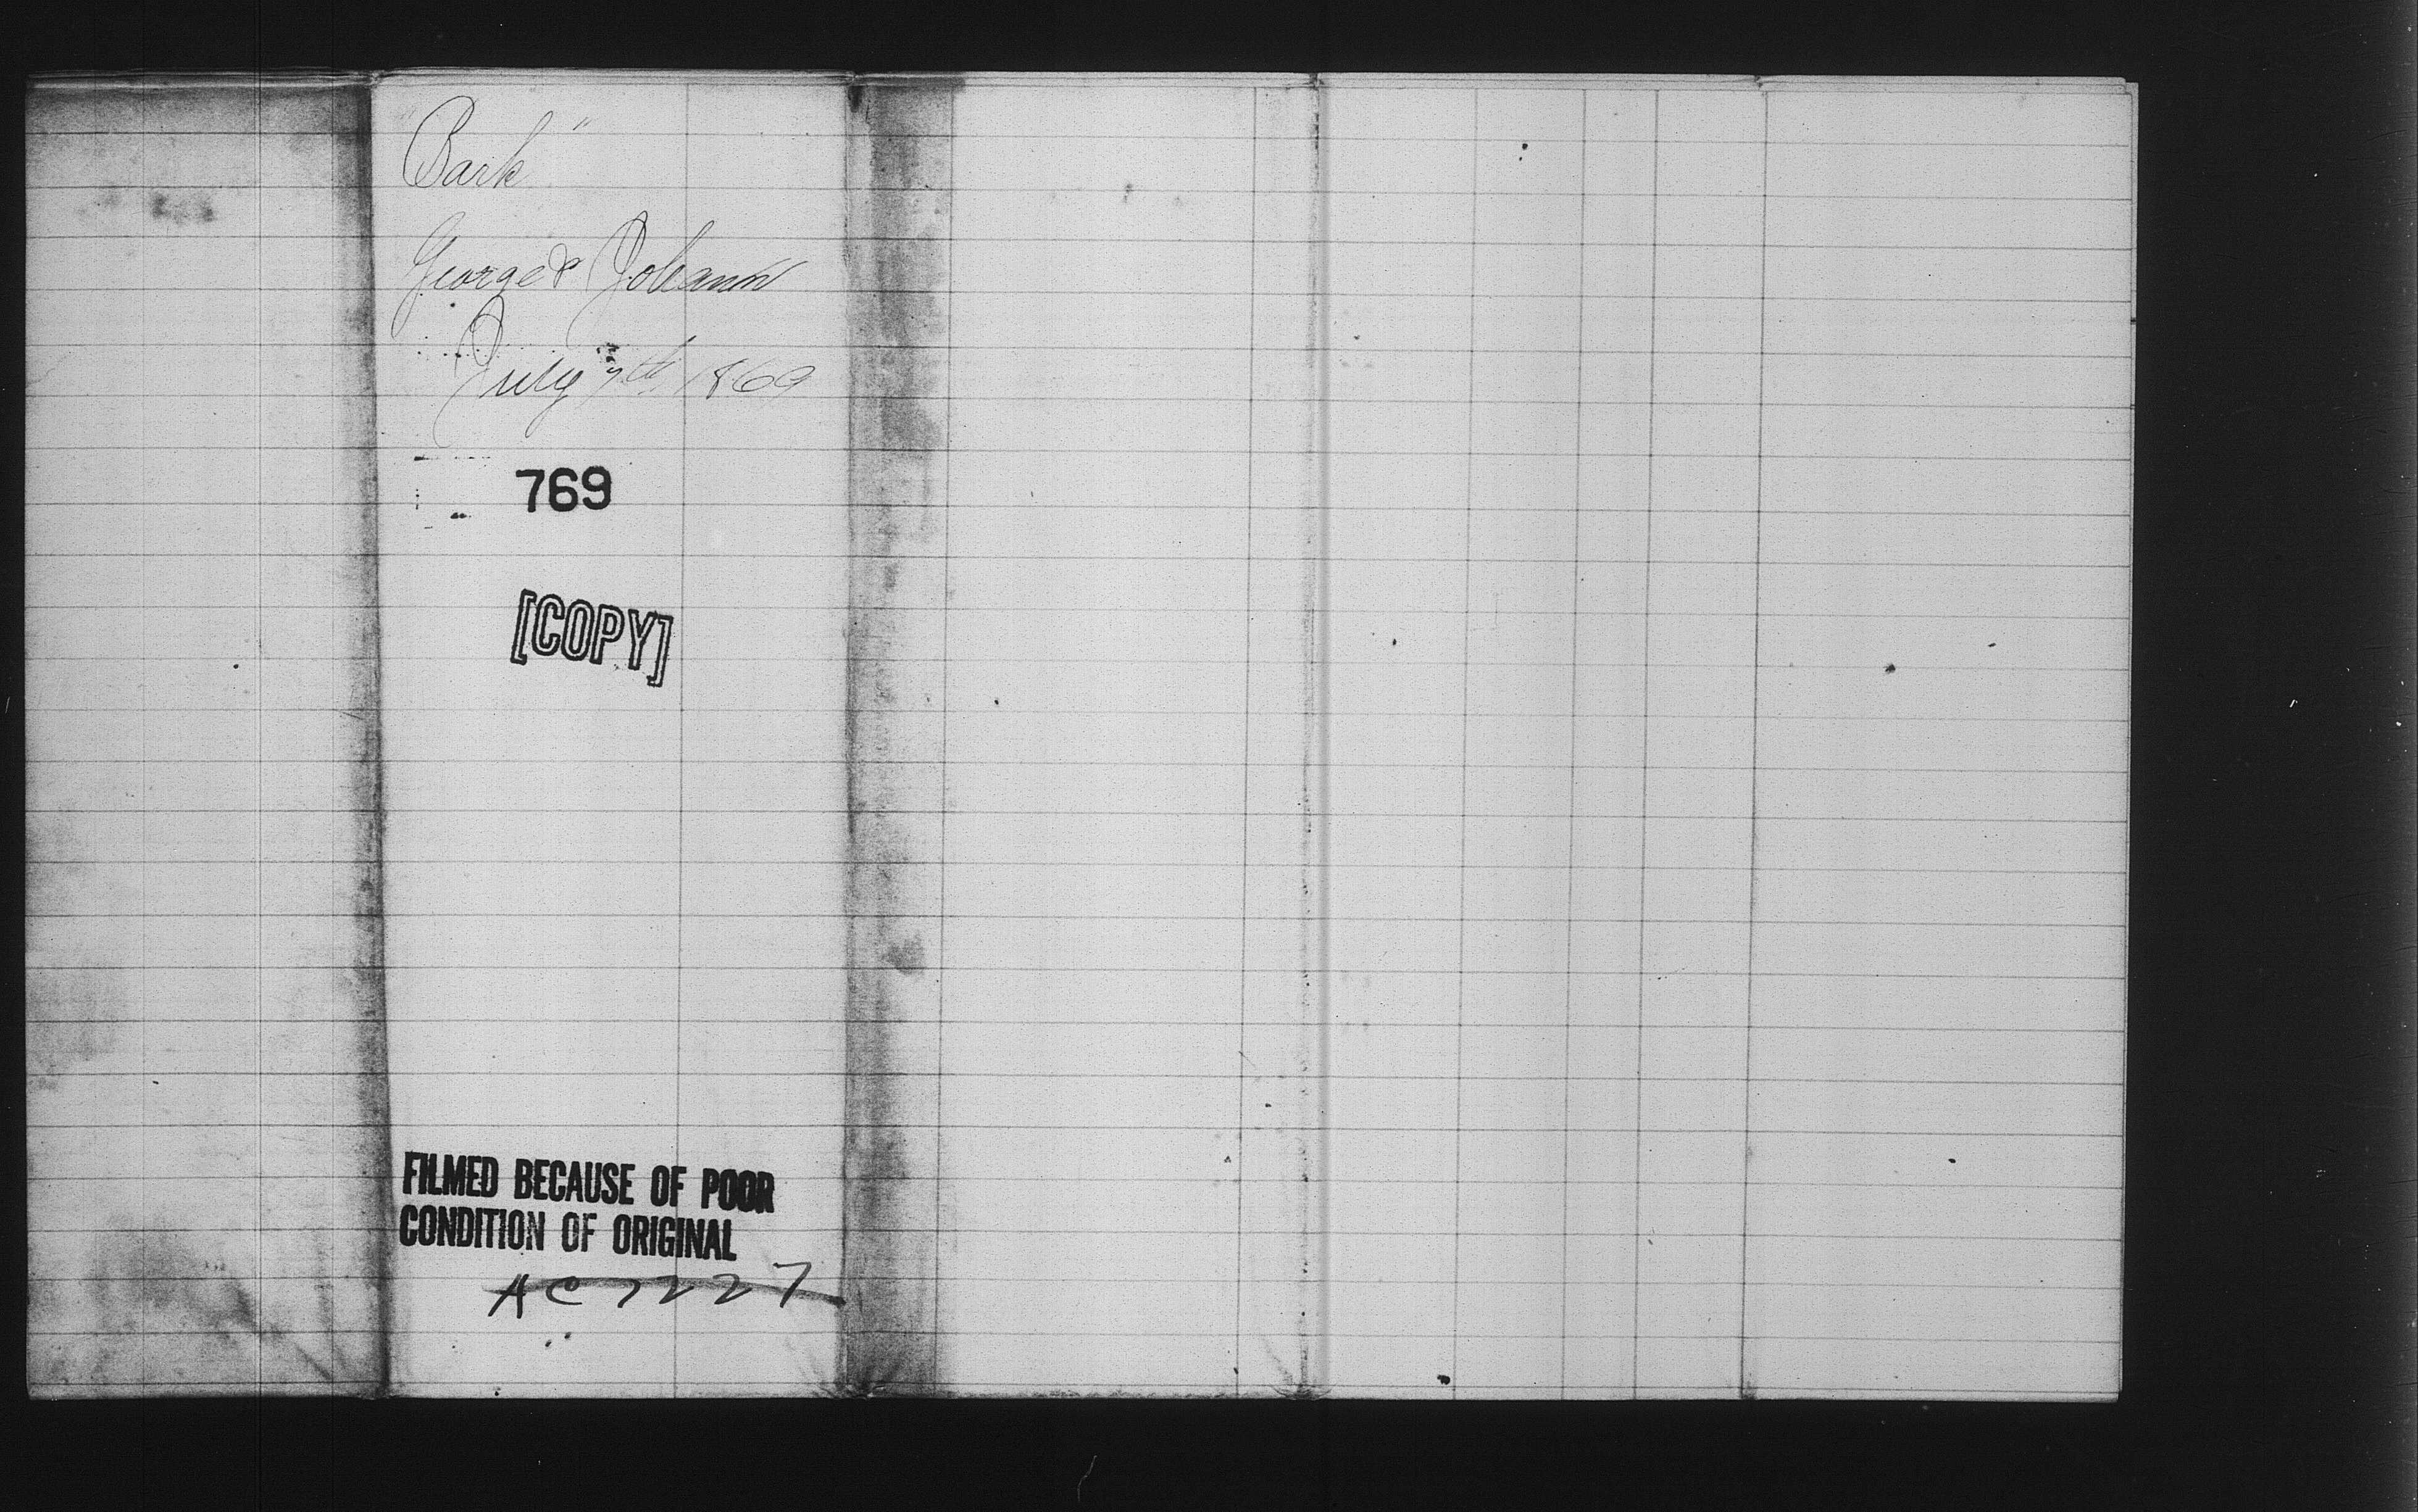 "Bark"
George & Johann
July 7th 1869
769
[COPY]
FILMED BECAUSE OF POOR
CONDITION OF ORIGINAL
AC 7227